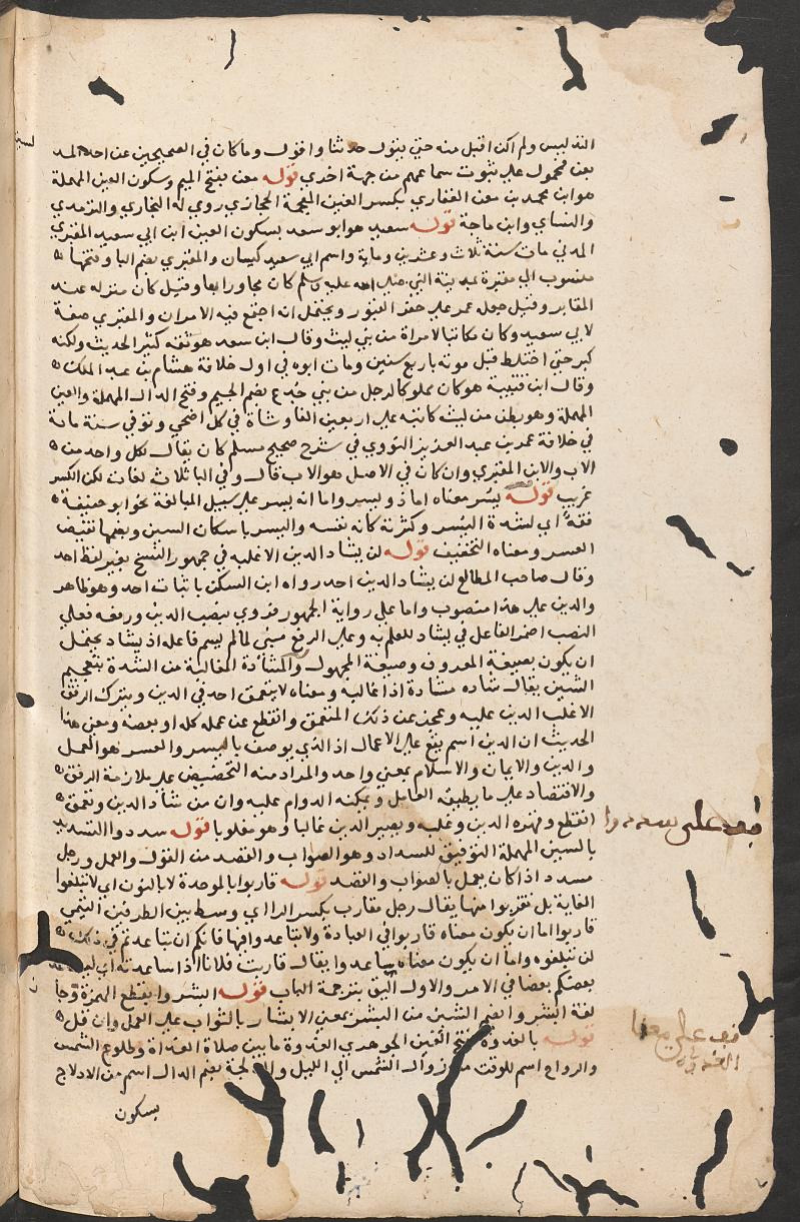 التدليس ولم اكن اقبل منه حتي يقول حدثنا واقول وما كان في الصحيحين عن احد المد
معن محمول علي ثبوت سماعهم من جهة اخري قوله معن بفتح الميم وسكون العين المهملة
هو ابن محمد بن معن الغفاري بكسر الغين المعجمة الحجازي روي له البخاري والترمذي
والنساي وابن ماجة قوله سعيد هو ابو سعد بسكون العين ابن ابي سعيد المقبري
المدني مات سنة ثلاث وعشرين وماية واسم ابي سعيد كيسان والمقبري بضم البا وفتحها
منصوب الي مقبرة بمدينة النبي صلي الله عليه وسلم كان مجاورا بها وقيل كان منزله عند
المقابر وقيل جعله عمر علي حفر القبور ويحتمل انه اجتمع فيه الامران والمقبري صفة
لابي سعيد وكان مكاتبا لامراة من بني ليث وقال ابن سعد هو ثقه كثير الحديث ولكنه
كبر حتي اختلط قبل موته باربع سنين ومات ابوه في اول خلافة هشام بن عبد الملك
وقال ابن قتيبة هو كان مملوكا لرجل من بني جندع بضم الجيم وفتح الدال المهملة والعين
المهملة وهو بطن من ليث كاتبه علي اربعين الفا وشاة في كل اضحي وتوفي سنة ماية
في خلافة عمر بن عبد العزيز النووي في شرح صحيح مسلم كان يقال لكل واحد من
الاب والابن المقبري وان كان في الاصل هو الاب قال وفي البا ثلاث لغات لكن الكسر
غريب قوله يسر معناه اما ذو يسر واما انه يسر علي سبيل المبالغة نحو ابو حنيفة
فقه اي لشدة اليسر وكثرته كانه نفسه واليسر باسكان السين وبضمها نقيض
العسر ومعناه التخفيف قوله لن يشاد الدين الا غلبه في جمهور النسخ بغير لفظ احد
وقال صاحب المطالع لن يشاد الدين احد رواه ابن السكن باثبات احد وهو ظاهر
والدين علي هذا منصوب واما علي رواية الجمهور فروي بنصب الدين ورفعه فعلي
النصب اضمر الفاعل في يشاد للعلم به وعلي الرفع مبني لما لم يسم فاعله اذ يشاد يحتمل
ان يكون بصيغة المعروف وصيغة المجهول والمشادة المغالبة من الشدة بتعجيم
الشين يقال شاده مشادة اذا غالبه ومعناه لا يتعمق احد في الدين ويترك الرفق
الا غلب الدين عليه وعجز عن ذلك المتعمق وانقطع عن عمله كله او بعضه ومعني هذا
الحديث ان الدين اسم يقع علي الاعمال اذ الذي يوصف باليسر والعسر هو العمل
والدين والايمان والاسلام بمعني واحد والمراد منه التحضيض علي ملازمة الرفق
والاقتصاد علي ما يطيقه العامل ويمكنه الدوام عليه وان من شاد الدين وتعمق
انقطع وقهره الدين وغلبه ويصير الدين غالبا وهو مغلوبا قوله سددوا التسديد
بالسين المهملة التوفيق للسداد وهو الصواب والقصد من القول والعمل ورجل
مسدد اذا كان يعمل بالصواب والقصد قوله قاربوا بالموحدة لا بالنون اي لا تبلغوا
الغاية بل تقربوا منها يقال رجل مقارب بكسر الراي وسط بين الطرفين التيمي
قاربوا اما ان يكون معناه قاربوا في العبادة ولا تباعدوا فيها فانكم ان تباعدتم في ذلك
لن تبلغوه واما ان يكون معناه ساعدوا يقال قاربت فلانا اذا ساعدته اي ليساعد
بعضكم بعضا في الامر والاول اليق بترجمة الباب قوله ابشروا بقطع الهمزة وجا
لغة ابشروا بضم الشين من البشر بمعني الابشار بالثواب علي العمل وان قل
قوله بالغدوة بفتح الغين الجوهري الغدوة ما بين صلاة الغداة وطلوع الشمس
والرواح اسم للوقت من زوال الشمس الي الليل والدلجة بضم الدال اسم من الادلاج
بسكون
قف علي سددوا
قف علي معنا
الغدوة